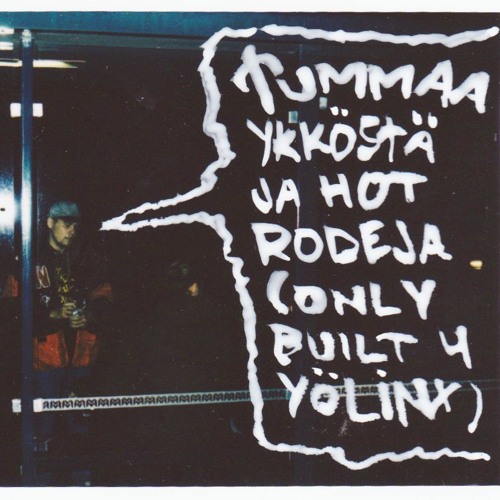 TUMMAA
YKKÖSTÄ
JA HOT
RODEJA
(ONLY
BUILT 4
YÖLINX)